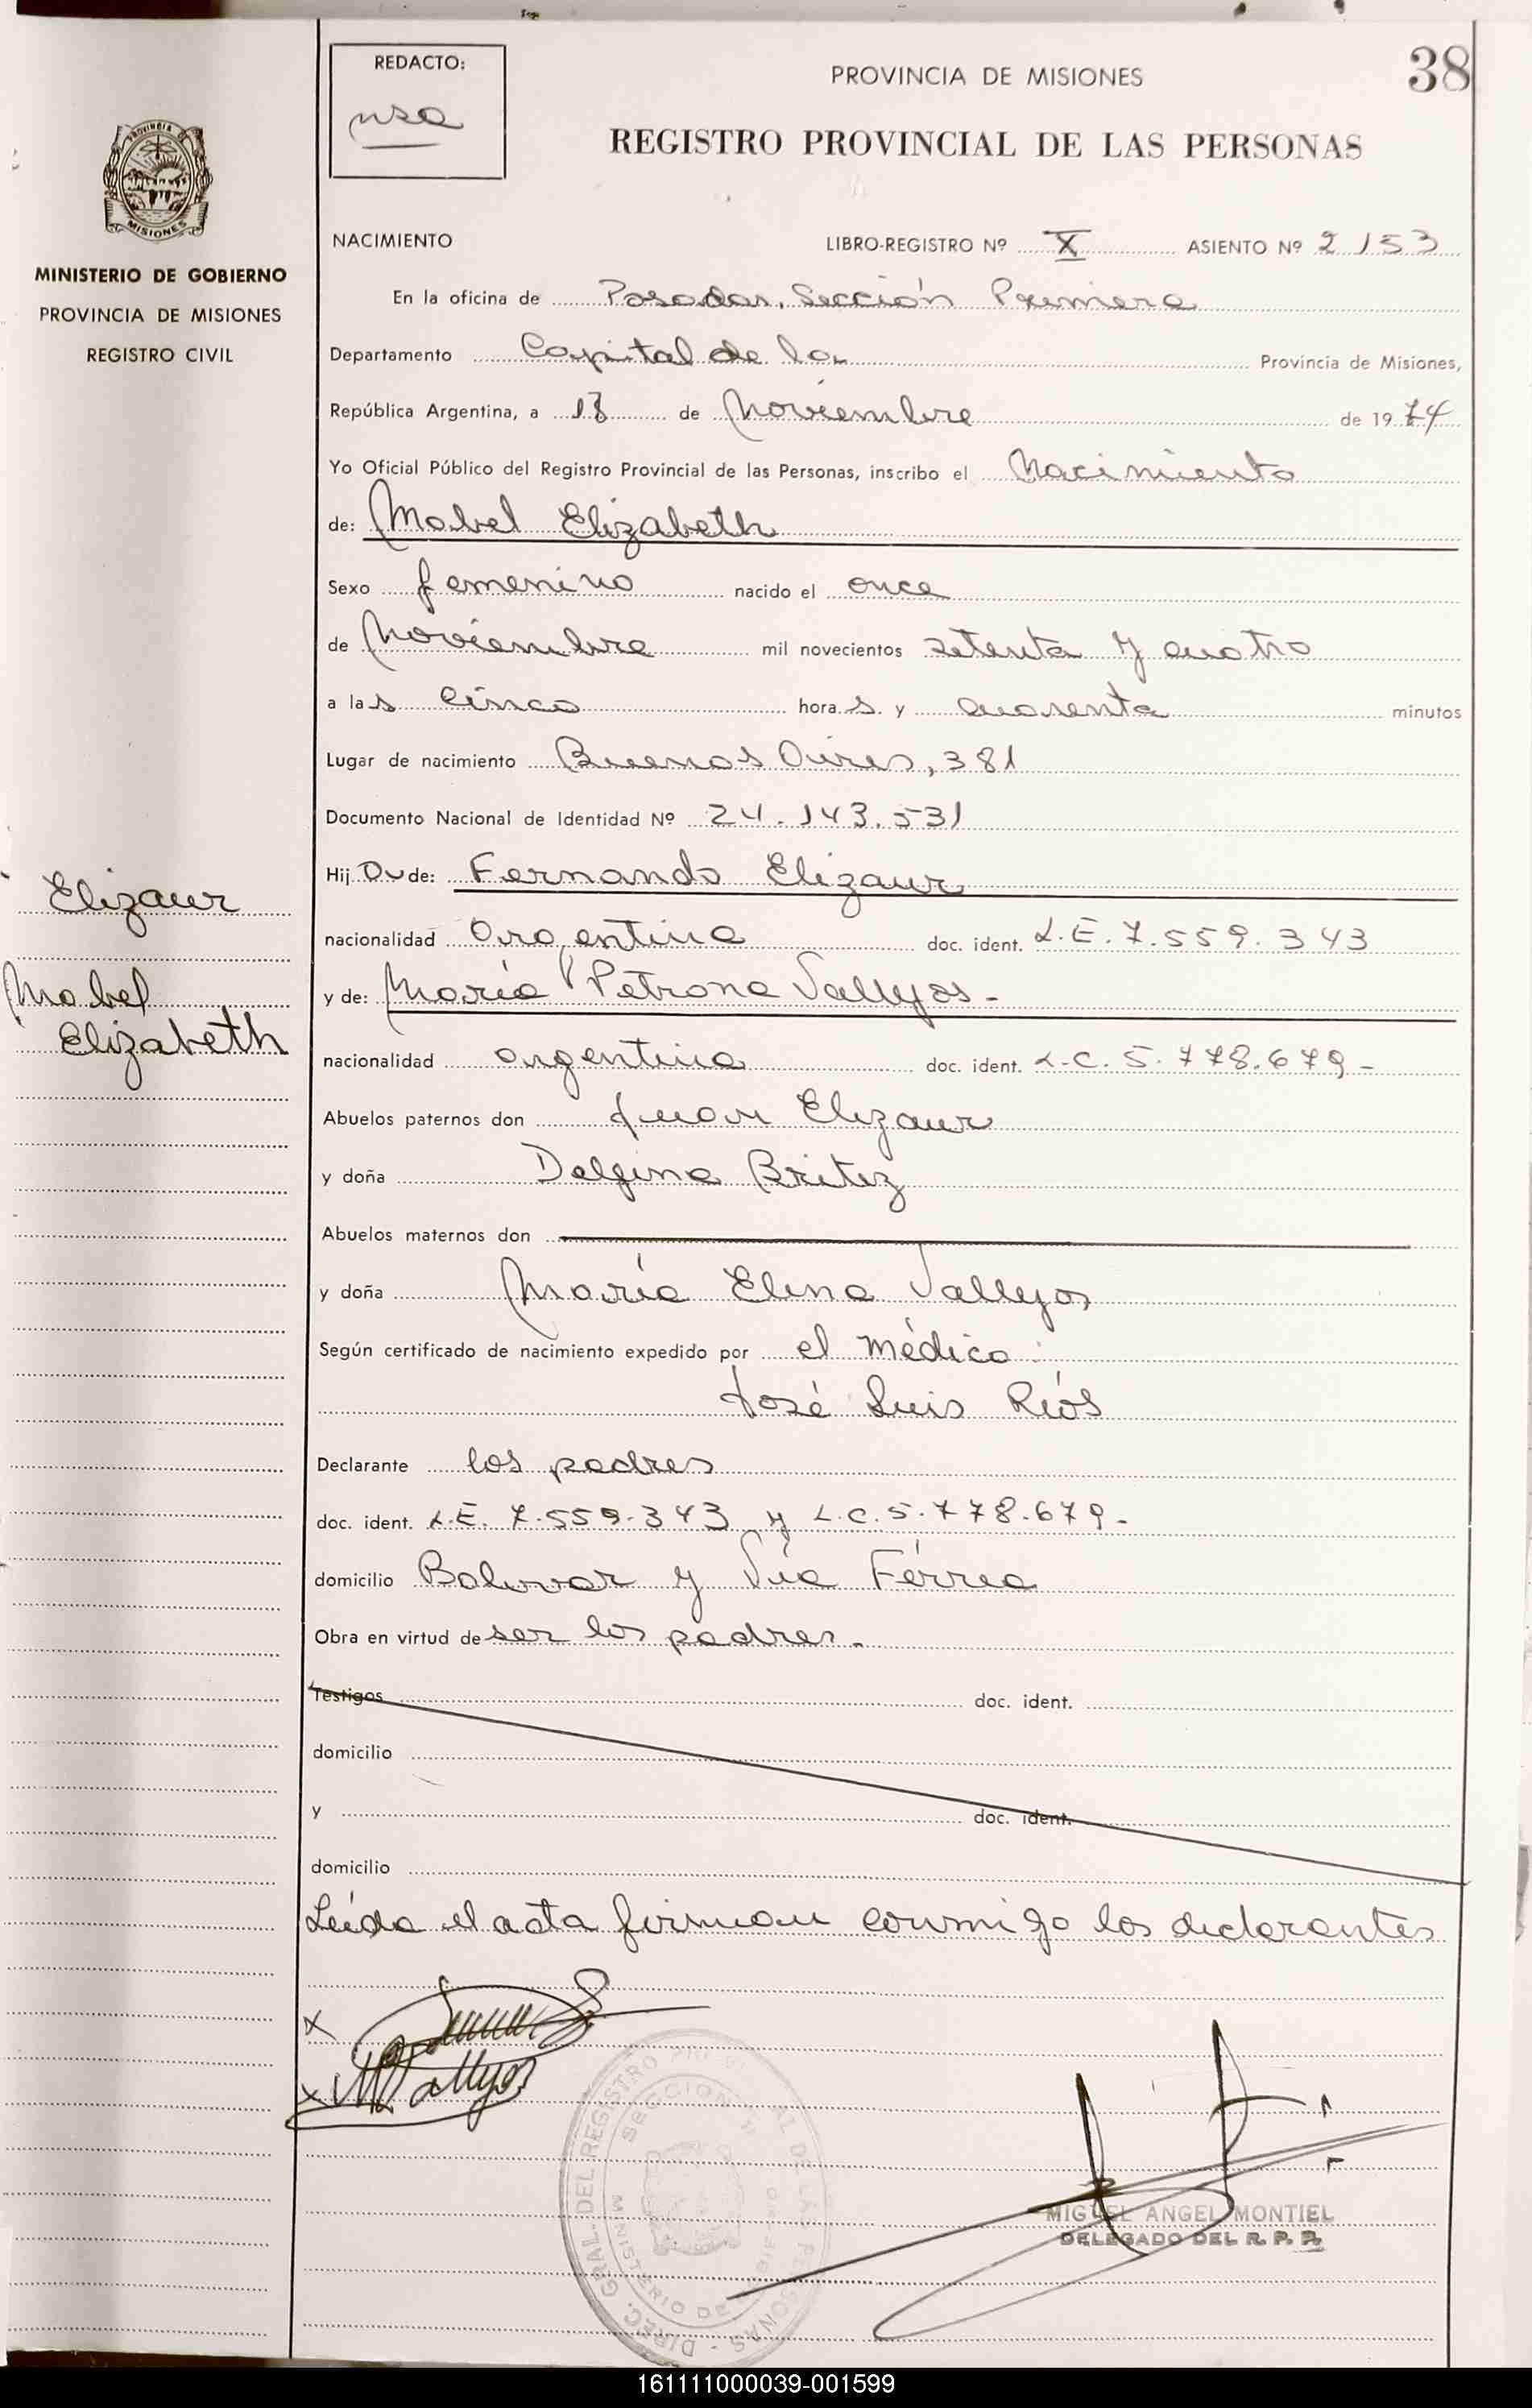 REDACTO:
nso
PROVINCIA DE MISIONES
38
REGISTRO PROVINCIAL DE LAS PERSONAS
MISIONES
MINISTERIO DE GOBIERNO
PROVINCIA DE MISIONES
REGISTRO CIVIL
NACIMIENTO LIBRO-REGISTRO Nº X ASIENTO Nº 2153
En la oficina de Posadas, Sección Primera
Departamento Capital de la Provincia de Misiones,
República Argentina, a 18 de Noviembre de 1974
Yo Oficial Público del Registro Provincial de las Personas, inscribo el Nacimiento
de: Mabel Elizabeth
Sexo femenino nacido el once
de Noviembre mil novecientos setenta y cuatro
a las cinco horas y cuarenta minutos
Lugar de nacimiento Buenos Aires, 381
Documento Nacional de Identidad Nº 24.143.531
Hija de: Fernando Elizaur
Elizaur
nacionalidad Argentina doc. ident. L.E. 7.559.343
Mabel
y de: María Petrona Vallejos -
Elizabeth
nacionalidad argentina doc. ident. L.C. 5.778.679 -
Abuelos paternos don Juan Elizaur
y doña Delfina Britez
Abuelos maternos don
y doña María Elena Vallejos
Según certificado de nacimiento expedido por el médico:
José Luis Ríos
Declarante los padres
doc. ident. L.E. 7.559.343 y L.C. 5.778.679 -
domicilio Bolivar y Vía Férrea
Obra en virtud de ser los padres.
Testigos doc. ident.
domicilio
y doc. ident.
domicilio
Leída el acta firman conmigo los declarantes
X
X MVallejos
DIREC. GRAL. DEL REGISTRO PROVINCIAL DE LAS PERSONAS
MINISTERIO DE GOBIERNO
MIGUEL ANGEL MONTIEL
DELEGADO DEL R. P. P.
161111000039-001599